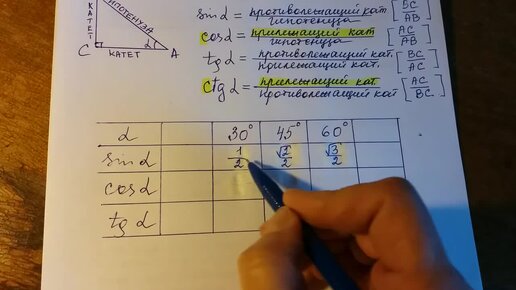 КАТЕТ
ГИПОТЕНУЗА
C α A
КАТЕТ
sin α = противолежащий кат / гипотенуза [BC/AB]
cos α = прилежащий кат / гипотенуза [AC/AB]
tg α = противолежащий кат. / прилежащий кат. [BC/AC]
ctg α = прилежащий кат. / противолежащий кат [AC/BC]
α 30° 45° 60°
sin α 1/2 √2/2 √3/2
cos α
tg α